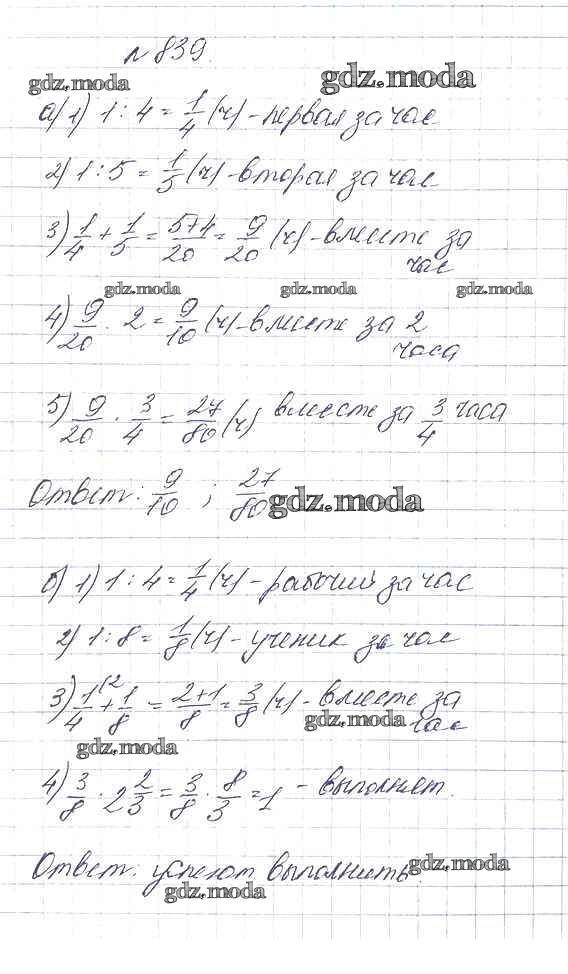 № 839.
gdz.moda gdz.moda
а) 1) 1 : 4 = 1/4 (ч) - первая за час
2) 1 : 5 = 1/5 (ч) - вторая за час
3) 1/4 + 1/5 = 5+4/20 = 9/20 (ч) - вместе за
час
gdz.moda gdz.moda gdz.moda
4) 9/20 · 2 = 9/10 (ч) - вместе за 2
часа
5) 9/20 · 3/4 = 27/80 (ч) вместе за 3/4 часа
Ответ: 9/10 ; 27/80
gdz.moda
б) 1) 1 : 4 = 1/4 (ч) - рабочий за час
2) 1 : 8 = 1/8 (ч) - ученик за час
3) 1/4 (2 + 1/8 = 2+1/8 = 3/8 (ч) - вместе за
час
gdz.moda
gdz.moda
4) 3/8 · 2 2/3 = 3/8 · 8/3 = 1 - выполнят.
Ответ: успеют выполнить.
gdz.moda
gdz.moda